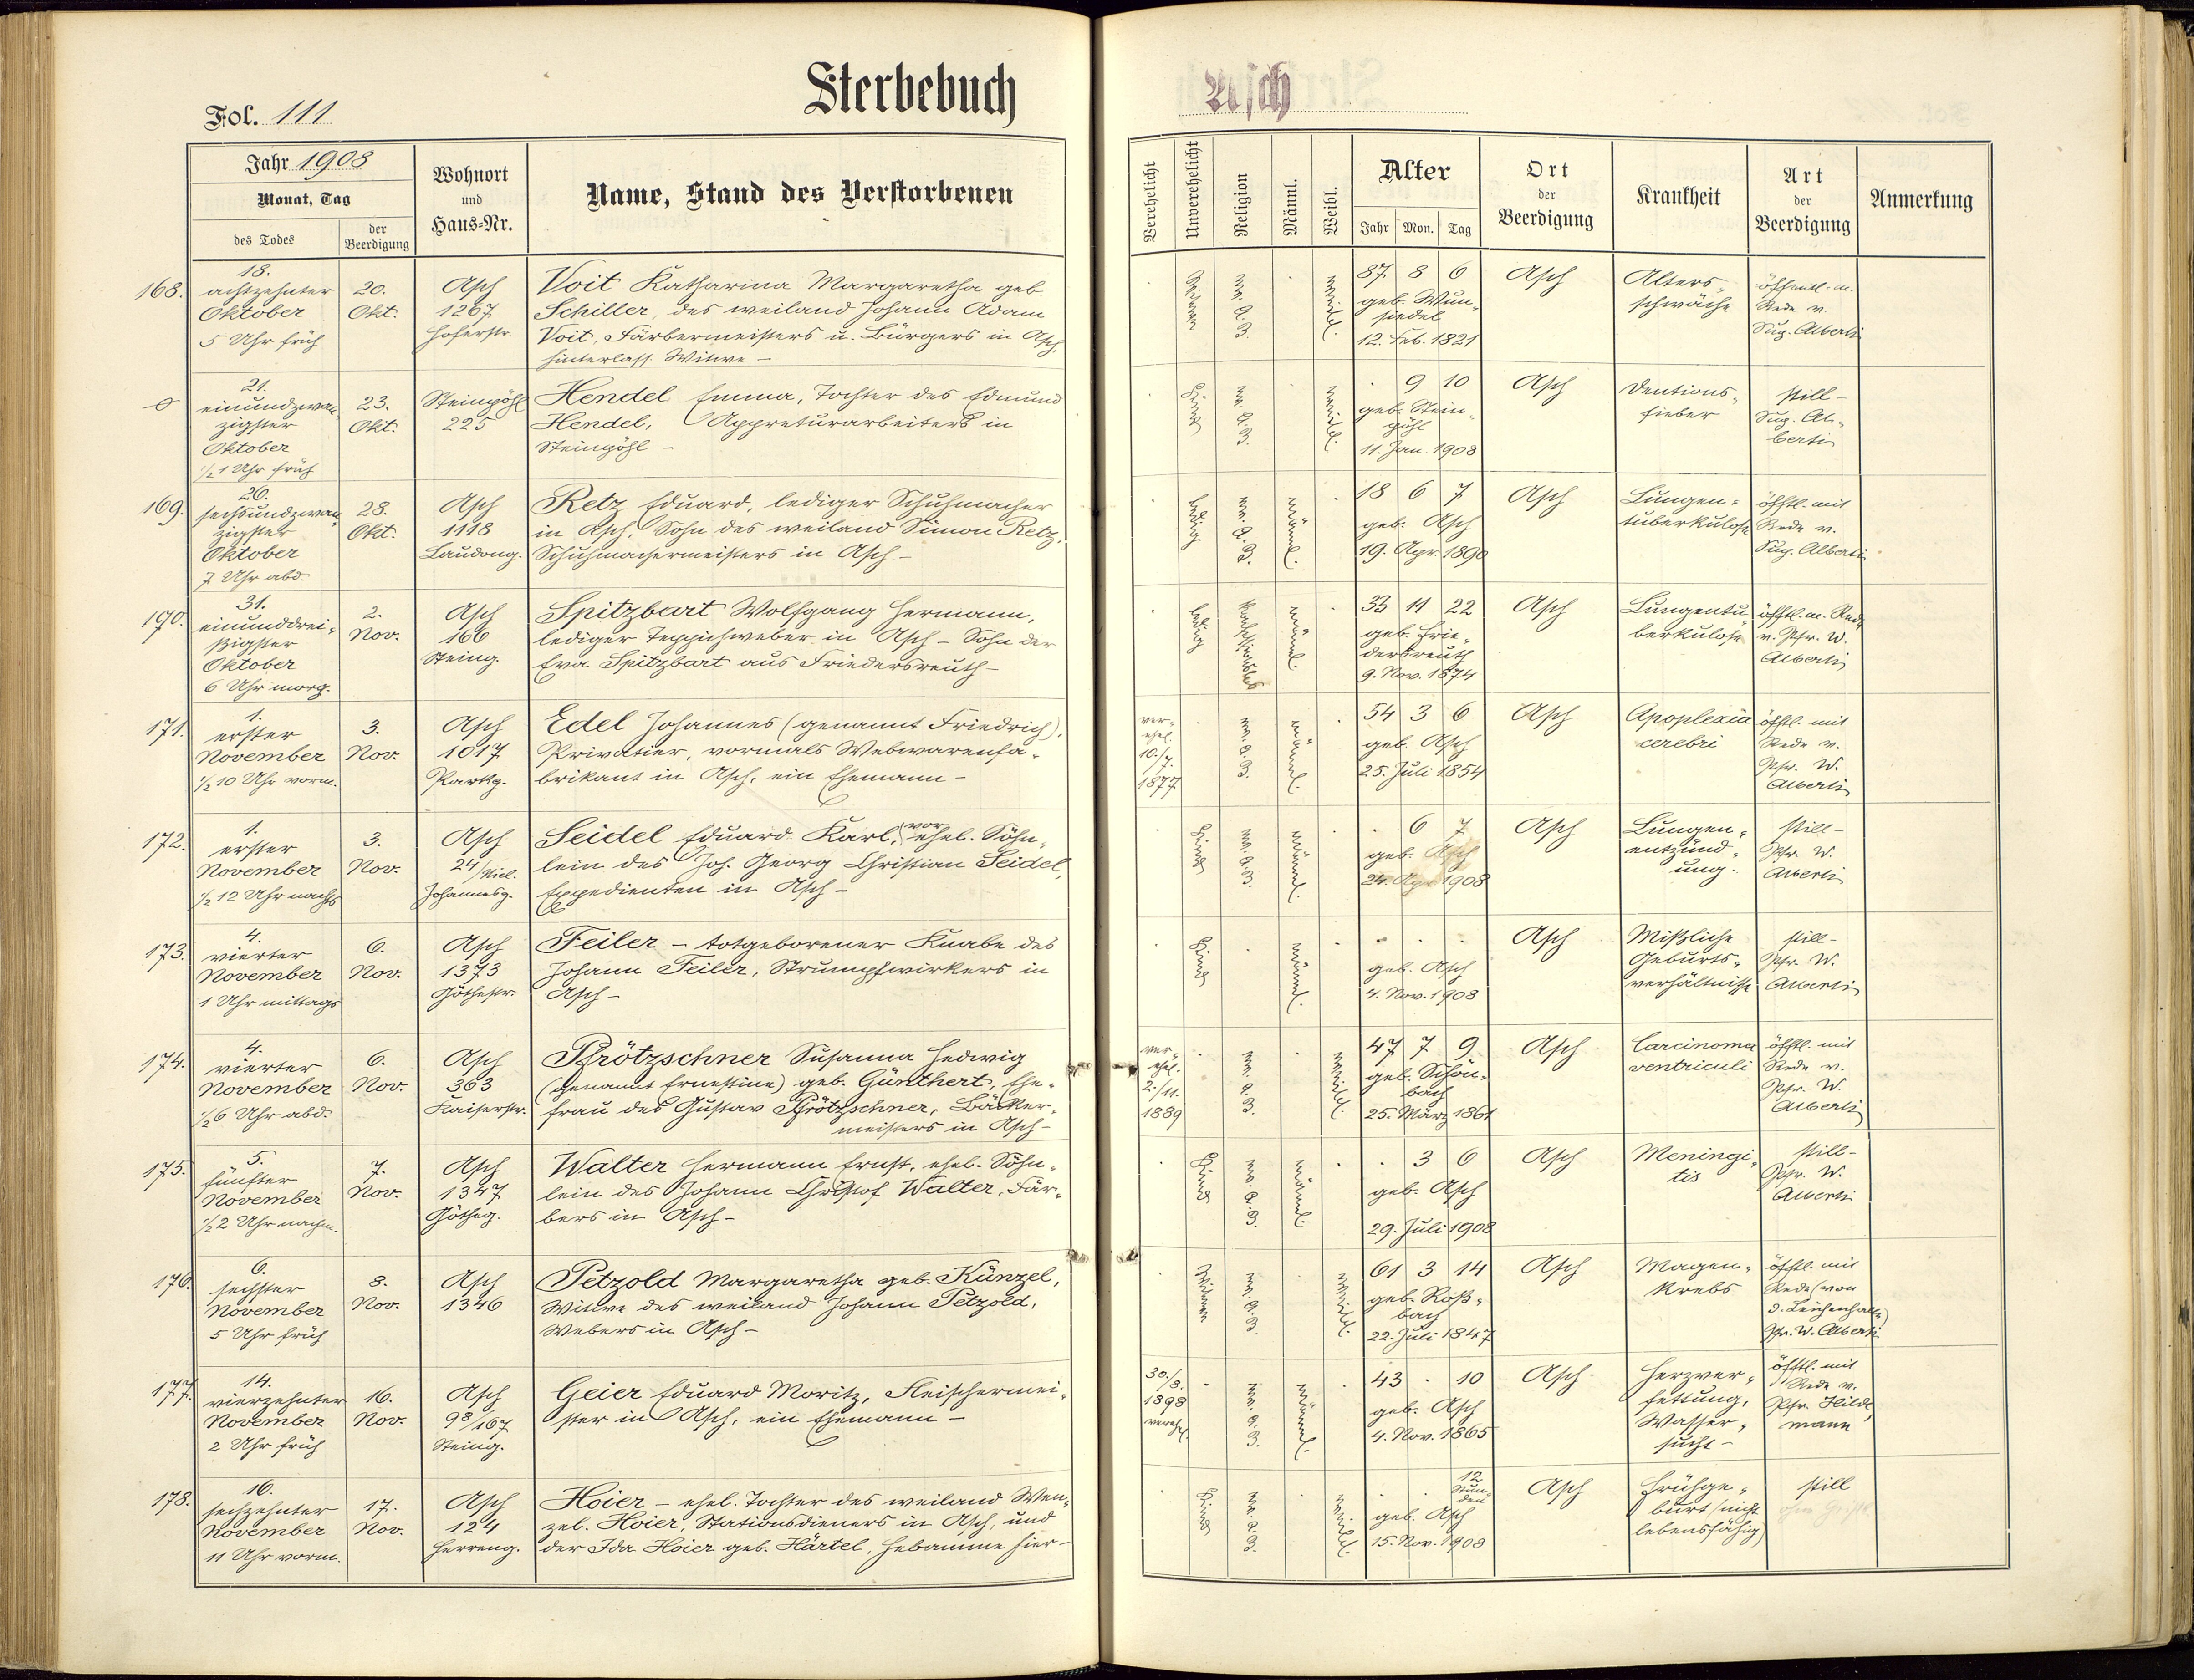 Sterbebuch
Asch
Fol. 111
Jahr 1908
Monat, Tag
des Todes
der Beerdigung
Wohnort
und
Haus-Nr.
Name, Stand des Verstorbenen
Verehelicht
Unverehelicht
Religion
Männl.
Weibl.
Alter
Jahr Mon. Tag
Ort
der
Beerdigung
Krankheit
Art
der
Beerdigung
Anmerkung
168.
18.
achtzehnter
Oktober
5 Uhr früh
20.
Okt.
Asch
1267
Hoferstr.
Voit Katharina Margaretha geb.
Schiller, des weiland Johann Adam
Voit, Färbermeisters u. Bürgers in Asch,
hinterlass. Witwe –
Witwe
ev. A. B.
weibl.
87 8 6
geb. Wun-
siedel
12. Feb. 1821
Asch
Alters-
schwäche
öffentl. m.
Rede v.
Sup. Alberti
21.
einundzwan-
zigster
Oktober
1/2 1 Uhr früh
23.
Okt.
Steingöhl
225
Hendel Emma, Tochter des Edmund
Hendel, Appreturarbeiters in
Steingöhl –
Kind
ev. A. B.
weibl.
9 10
geb. Stein-
göhl
11. Jan. 1908
Asch
Dentions-
fieber
still –
Sup. Al-
berti
169.
26.
sechsundzwan-
zigster
Oktober
7 Uhr abd.
28.
Okt.
Asch
1118
Laudong.
Retz Eduard, lediger Schuhmacher
in Asch, Sohn des weiland Simon Retz,
Schuhmachermeisters in Asch –
ledig
ev. A. B.
männl.
18 6 7
geb. Asch
19. Apr. 1890
Asch
Lungen-
tuberkulose
öfftl. mit
Rede v.
Sup. Alberti
170.
31.
einunddrei-
ßigster
Oktober
6 Uhr morg.
2.
Nov.
Asch
166
Steing.
Spitzbart Wolfgang Hermann,
lediger Teppichweber in Asch – Sohn der
Eva Spitzbart aus Friedersreuth –
ledig
männl.
33 11 22
geb. Frie-
dersreuth
9. Nov. 1874
Asch
Lungentu-
berkulose
öfftl. m. Rede
v. Pfr. W.
Alberti
171.
1.
erster
November
1/2 10 Uhr vorm.
3.
Nov.
Asch
1017
Parkg.
Edel Johannes (genannt Friedrich),
Privatier, vormals Webwarenfa-
brikant in Asch, ein Ehemann –
ver-
ehel.
10./7.
1877
ev. A. B.
männl.
54 3 6
geb. Asch
25. Juli 1854
Asch
Apoplexia
cerebri
öfftl. mit
Rede v.
Pfr. W.
Alberti
172.
1.
erster
November
1/2 12 Uhr nachts
3.
Nov.
Asch
24/Niel.
Johannesg.
Seidel Eduard Karl, vorehel. Söhn-
lein des Joh. Georg Christian Seidel,
Expedienten in Asch –
Kind
ev. A. B.
männl.
6 7
geb. Asch
24. Apr. 1908
Asch
Lungen-
entzünd-
ung.
still –
Pfr. W.
Alberti
173.
4.
vierter
November
1 Uhr mittags
6.
Nov.
Asch
1373
Göthestr.
Feiler – totgeborener Knabe des
Johann Feiler, Strumpfwirkers in
Asch –
Kind
männl.
geb. Asch
4. Nov. 1908
Asch
Mißliche
Geburts-
verhältnisse
still –
Pfr. W.
Alberti
174.
4.
vierter
November
1/2 6 Uhr abd.
6.
Nov.
Asch
363
Kaiserstr.
Pfrötzschner Susanna Hedwig
(genannt Ernestine) geb. Günthert, Ehe-
frau des Gustav Pfrötzschner, Bäcker-
meisters in Asch –
ver-
ehel.
2./11.
1889
ev. A. B.
weibl.
47 7 9
geb. Schön-
bach
25. März 1861
Asch
Carcinoma
ventriculi
öfftl. mit
Rede v.
Pfr. W.
Alberti
175.
5.
fünfter
November
1/2 2 Uhr nachm.
7.
Nov.
Asch
1347
Götheg.
Walter Hermann Ernst, ehel. Söhn-
lein des Johann Christof Walter, Fär-
bers in Asch –
Kind
ev. A. B.
männl.
3 6
geb. Asch
29. Juli 1908
Asch
Meningi-
tis
still –
Pfr. W.
Alberti
176.
6.
sechster
November
5 Uhr früh
8.
Nov.
Asch
1346
Petzold Margaretha geb. Künzel,
Witwe des weiland Johann Petzold,
Webers in Asch –
Witwe
ev. A. B.
weibl.
61 3 14
geb. Roß-
bach
22. Juli 1847
Asch
Magen-
krebs
öfftl. mit
Rede (von
d. Leichenhalle)
Pfr. W. Alberti
177.
14.
vierzehnter
November
2 Uhr früh
16.
Nov.
Asch
98/167
Steing.
Geier Eduard Moritz, Fleischermei-
ster in Asch, ein Ehemann –
30./8.
1898
verehel.
ev. A. B.
männl.
43 . 10
geb. Asch
4. Nov. 1865
Asch
Herzver-
fettung,
Wasser-
sucht –
öfftl. mit
Rede v.
Pfr. Hilde-
mann
178.
16.
sechzehnter
November
11 Uhr vorm.
17.
Nov.
Asch
124
Herreng.
Hoier – ehel. Tochter des weiland Wen-
zel Hoier, Stationsdieners in Asch, und
der Ida Hoier geb. Härtel, Hebamme hier –
Kind
ev. A. B.
weibl.
12
Stun-
den
geb. Asch
15. Nov. 1908
Asch
Frühge-
burt (nicht
lebensfähig)
still